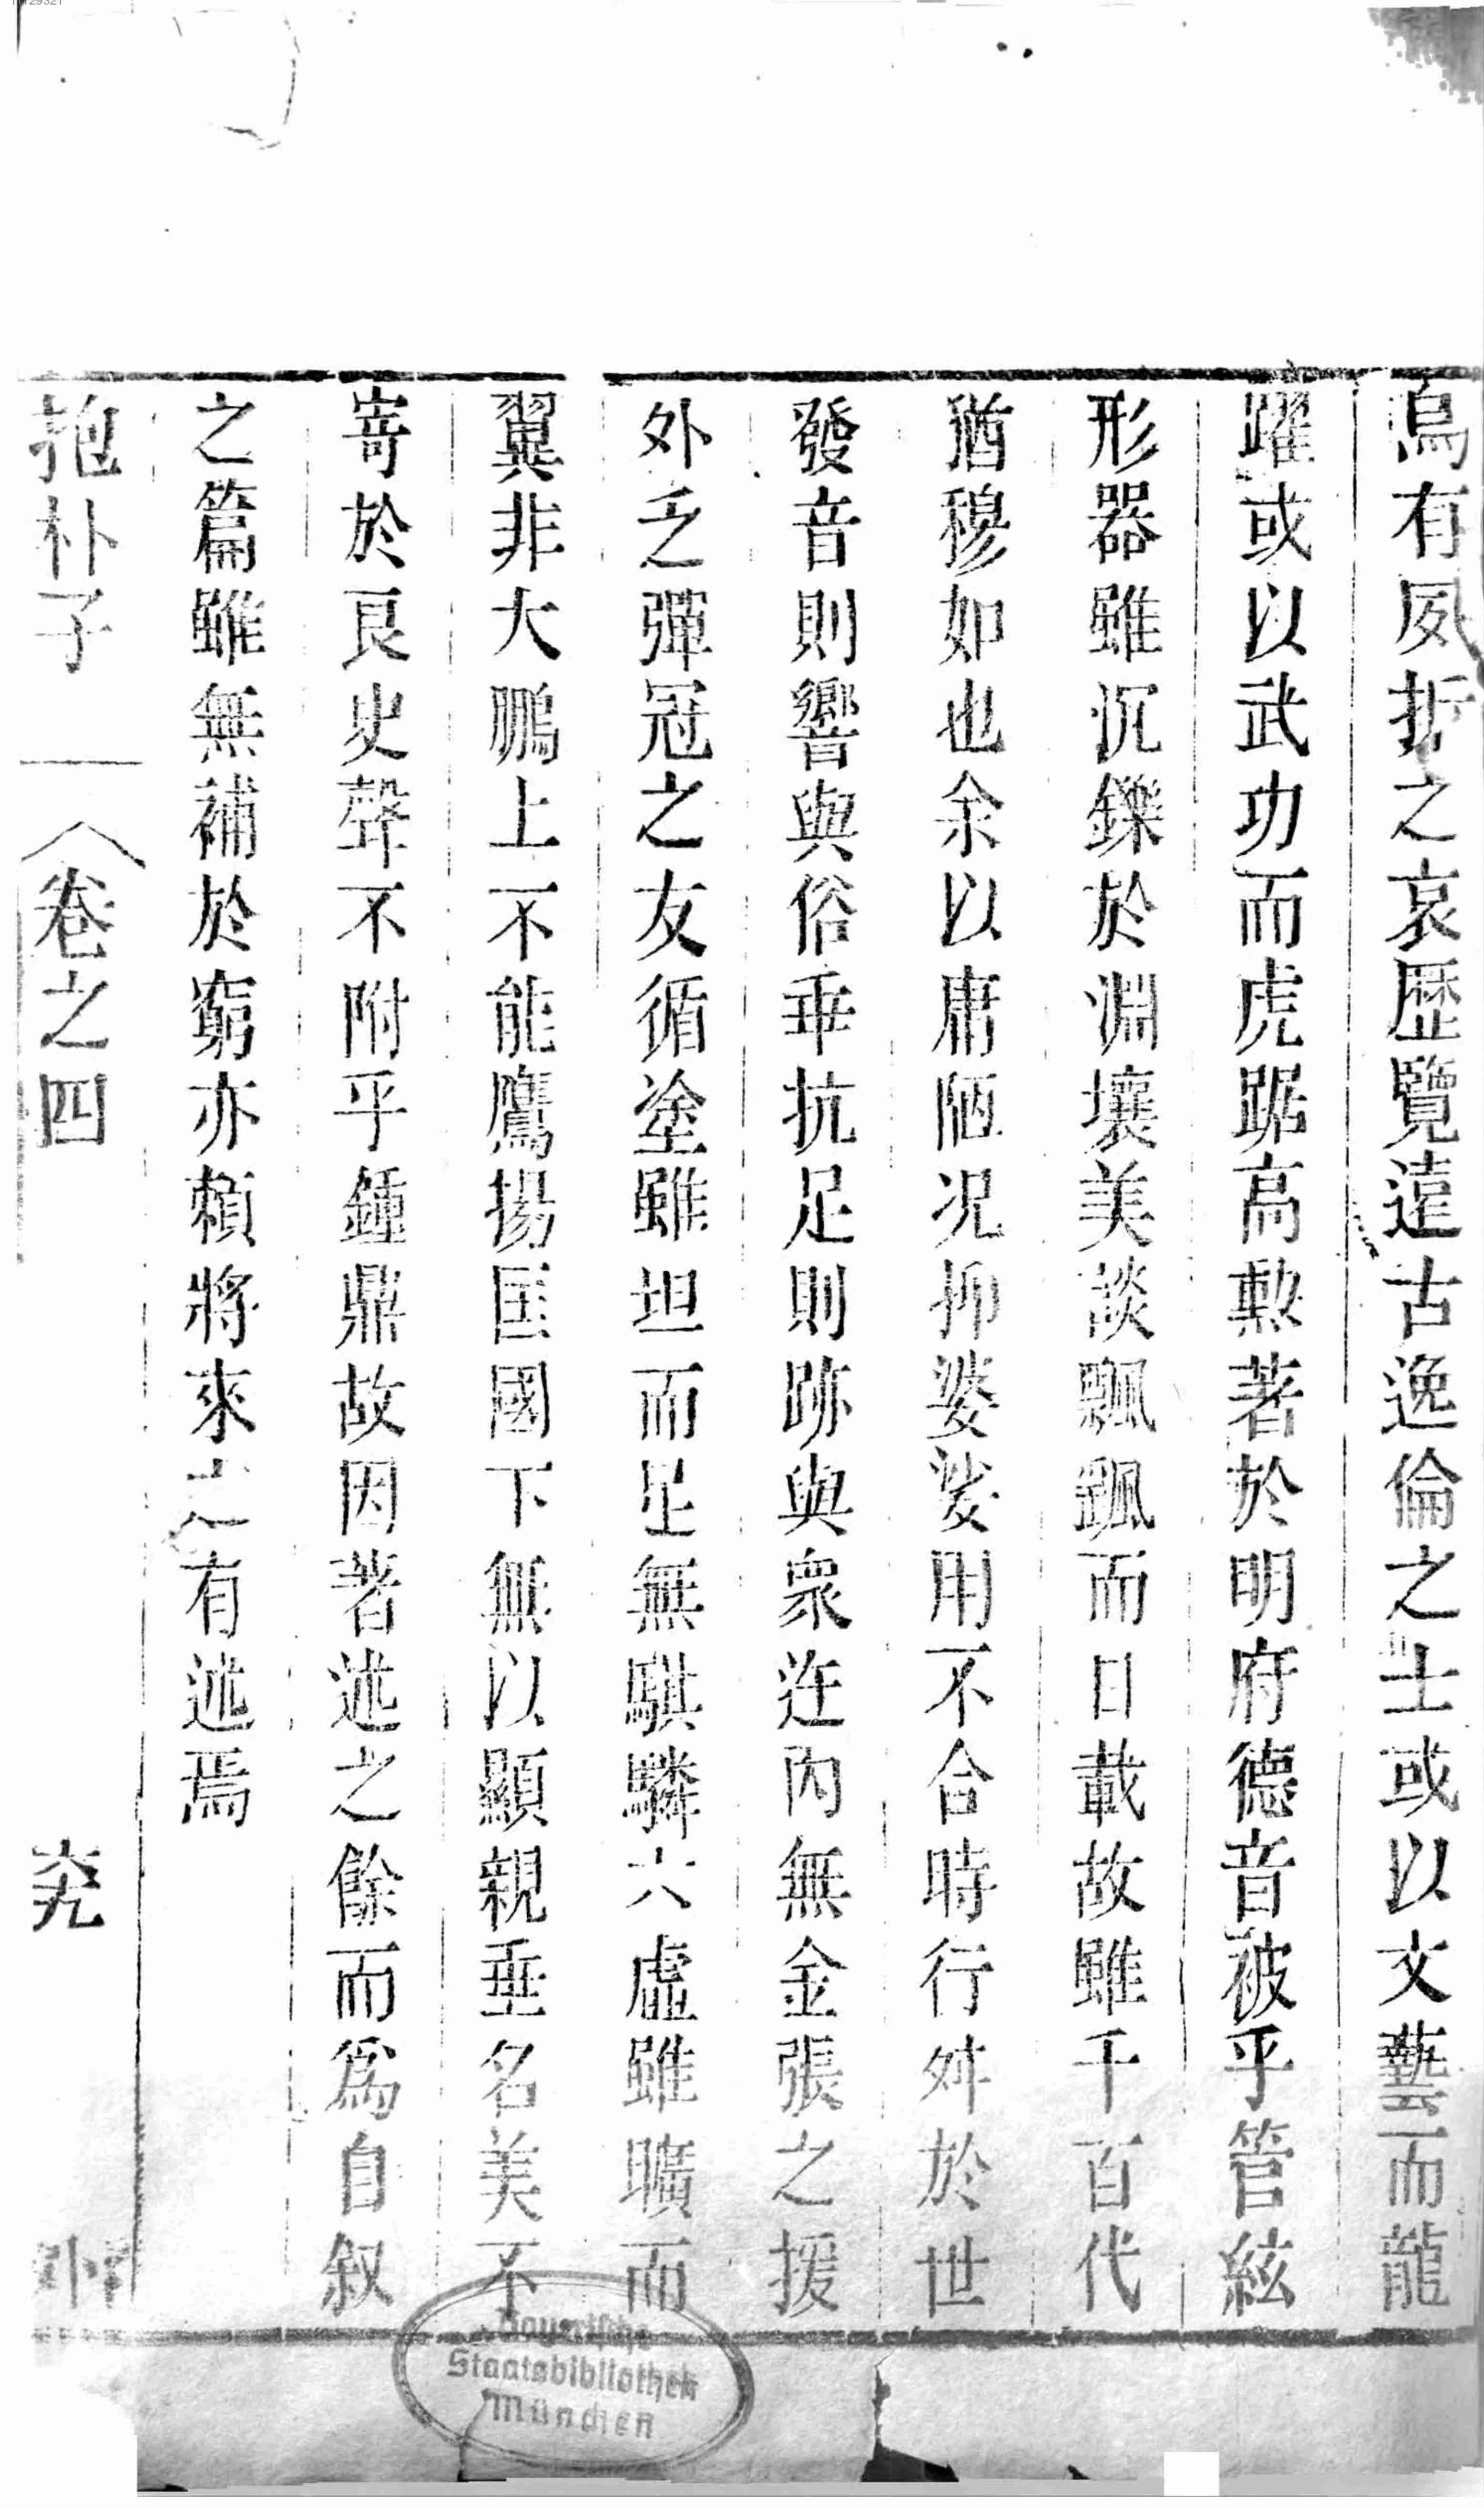 焉有夙折之哀歷覽遠古逸倫之士或以文藝而龍
躍或以武功而虎踞高勲著於明府德音被乎管絃
形器雖沉鑠於淵壤美談飄颻而日載故雖千百代
猶穆如也余以庸陋況抑婆娑用不合時行舛於世
發音則響與俗乖抗足則跡與衆迕內無金張之援
外乏彈冠之友循塗雖坦而足無騏驎六虛雖曠而
翼非大鵬上不能鷹揚匡國下無以顯親垂名美不
寄於良史聲不附乎鍾鼎故因著述之餘而爲自叙
之篇雖無補於窮亦賴將來之有述焉
抱朴子 卷之四 六九 外
Bayerische
Staatsbibliothek
München